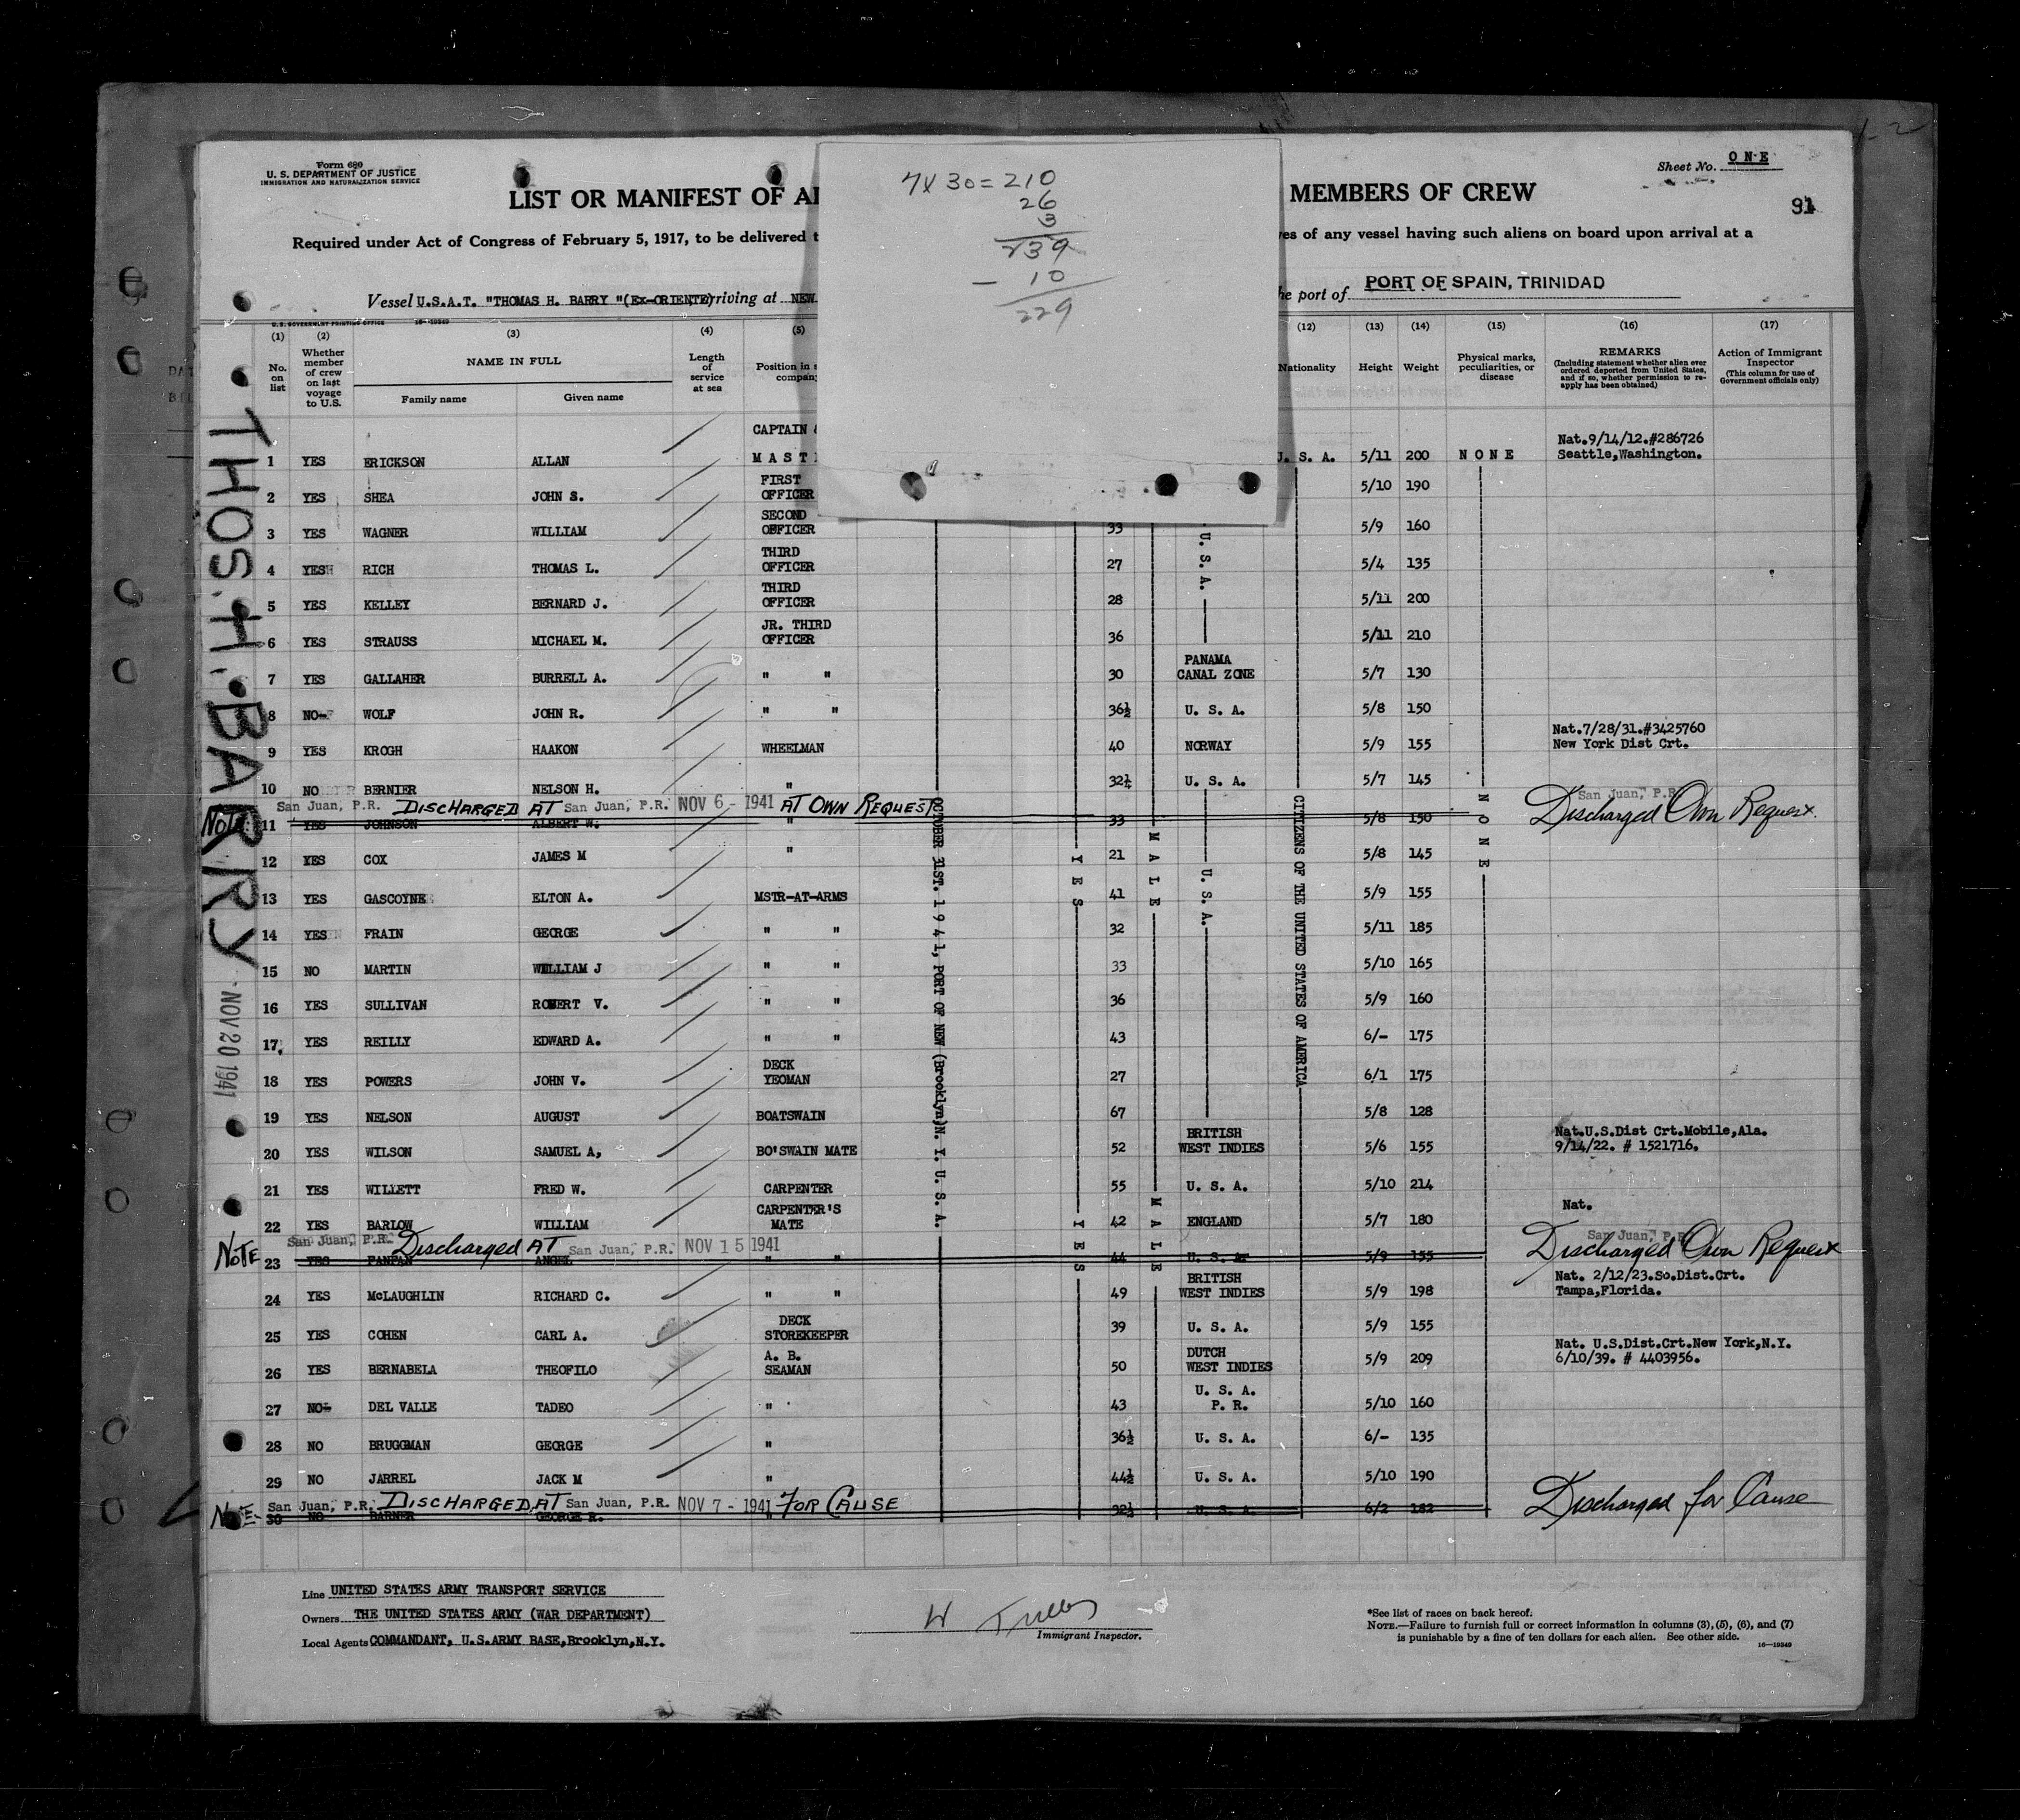 Form 680
U. S. DEPARTMENT OF JUSTICE
IMMIGRATION AND NATURALIZATION SERVICE
Sheet No. ONE
91
LIST OR MANIFEST OF AL
MEMBERS OF CREW
Required under Act of Congress of February 5, 1917, to be delivered t
res of any vessel having such aliens on board upon arrival at a
Vessel U.S.A.T. "THOMAS H. BARRY "(Ex-ORIENTE) arriving at NEW
he port of PORT OF SPAIN, TRINIDAD
7 x 30 = 210
26
3
239
- 10
229
U.S. GOVERNMENT PRINTING OFFICE 16-19349
(1) (2) (3) (4) (5) (12) (13) (14) (15) (16) (17)
No. on list
Whether member of crew on last voyage to U.S.
NAME IN FULL
Family name Given name
Length of service at sea
Position in s
company
Nationality
Height
Weight
Physical marks, peculiarities, or disease
REMARKS
(Including statement whether alien ever ordered deported from United States, and if so, whether permission to reapply has been obtained)
Action of Immigrant Inspector
(This column for use of Government officials only)
THOS. H. BARRY
NOV 20 1941
1 YES ERICKSON ALLAN CAPTAIN & MAST U. S. A. 5/11 200 NONE Nat.9/14/12.#286726 Seattle,Washington.
2 YES SHEA JOHN S. FIRST OFFICER 5/10 190
3 YES WAGNER WILLIAM SECOND OFFICER 33 5/9 160
4 YES RICH THOMAS L. THIRD OFFICER 27 5/4 135
5 YES KELLEY BERNARD J. THIRD OFFICER 28 5/11 200
6 YES STRAUSS MICHAEL M. JR. THIRD OFFICER 36 5/11 210
7 YES GALLAHER BURRELL A. " " 30 PANAMA CANAL ZONE 5/7 130
8 NO WOLF JOHN R. " " 36½ U. S. A. 5/8 150
9 YES KROGH HAAKON WHEELMAN 40 NORWAY 5/9 155 Nat.7/28/31.#3425760 New York Dist Crt.
10 NO BERNIER NELSON H. " 32½ U. S. A. 5/7 145
San Juan, P.R. DISCHARGED AT San Juan, P.R. NOV 6 - 1941 AT OWN REQUEST San Juan, P.R. Discharged Own Request.
NOTE 11 YES JOHNSON ALBERT W. " 33 5/8 150
12 YES COX JAMES M " 21 5/8 145
13 YES GASCOYNE ELTON A. MSTR-AT-ARMS 41 5/9 155
14 YES FRAIN GEORGE " " 32 5/11 185
15 NO MARTIN WILLIAM J " " 33 5/10 165
16 YES SULLIVAN ROBERT V. " " 36 5/9 160
17 YES REILLY EDWARD A. " " 43 6/- 175
18 YES POWERS JOHN V. DECK YEOMAN 27 6/1 175
19 YES NELSON AUGUST BOATSWAIN 67 5/8 128
20 YES WILSON SAMUEL A, BO'SWAIN MATE 52 BRITISH WEST INDIES 5/6 155 Nat.U.S.Dist Crt.Mobile,Ala. 9/14/22. # 1521716.
21 YES WILLETT FRED W. CARPENTER 55 U. S. A. 5/10 214
22 YES BARLOW WILLIAM CARPENTER'S MATE 42 ENGLAND 5/7 180 Nat.
San Juan, P.R. Discharged AT San Juan, P.R. NOV 15 1941 San Juan, P.R. Discharged Own Request
NOTE 23 YES PANPAN ANGEL " " 44 U. S. A. 5/9 155
24 YES McLAUGHLIN RICHARD C. " " 49 BRITISH WEST INDIES 5/9 198 Nat. 2/12/23.So.Dist.Crt. Tampa,Florida.
25 YES COHEN CARL A. DECK STOREKEEPER 39 U. S. A. 5/9 155
26 YES BERNABELA THEOFILO A. B. SEAMAN 50 DUTCH WEST INDIES 5/9 209 Nat. U.S.Dist.Crt.New York,N.Y. 6/10/39. # 4403956.
27 NO DEL VALLE TADEO " 43 U. S. A. P. R. 5/10 160
28 NO BRUGGMAN GEORGE " 36½ U. S. A. 6/- 135
29 NO JARREL JACK M " 44½ U. S. A. 5/10 190
San Juan, P.R. DISCHARGED AT San Juan, P.R. NOV 7 - 1941 FOR CAUSE Discharged for Cause
NOTE 30 NO BARNER GEORGE R. " 32½ U. S. A. 6/2 182
OCTOBER 31ST. 1941, PORT OF NEW (Brooklyn)N. Y. U. S. A.
YES
YES
MALE
MALE
U. S. A.
U. S. A.
CITIZENS OF THE UNITED STATES OF AMERICA
NONE
Line UNITED STATES ARMY TRANSPORT SERVICE
Owners THE UNITED STATES ARMY (WAR DEPARTMENT)
Local Agents COMMANDANT, U.S.ARMY BASE,Brooklyn,N.Y.
Immigrant Inspector.
*See list of races on back hereof.
NOTE.—Failure to furnish full or correct information in columns (3), (5), (6), and (7)
is punishable by a fine of ten dollars for each alien. See other side. 16—19349